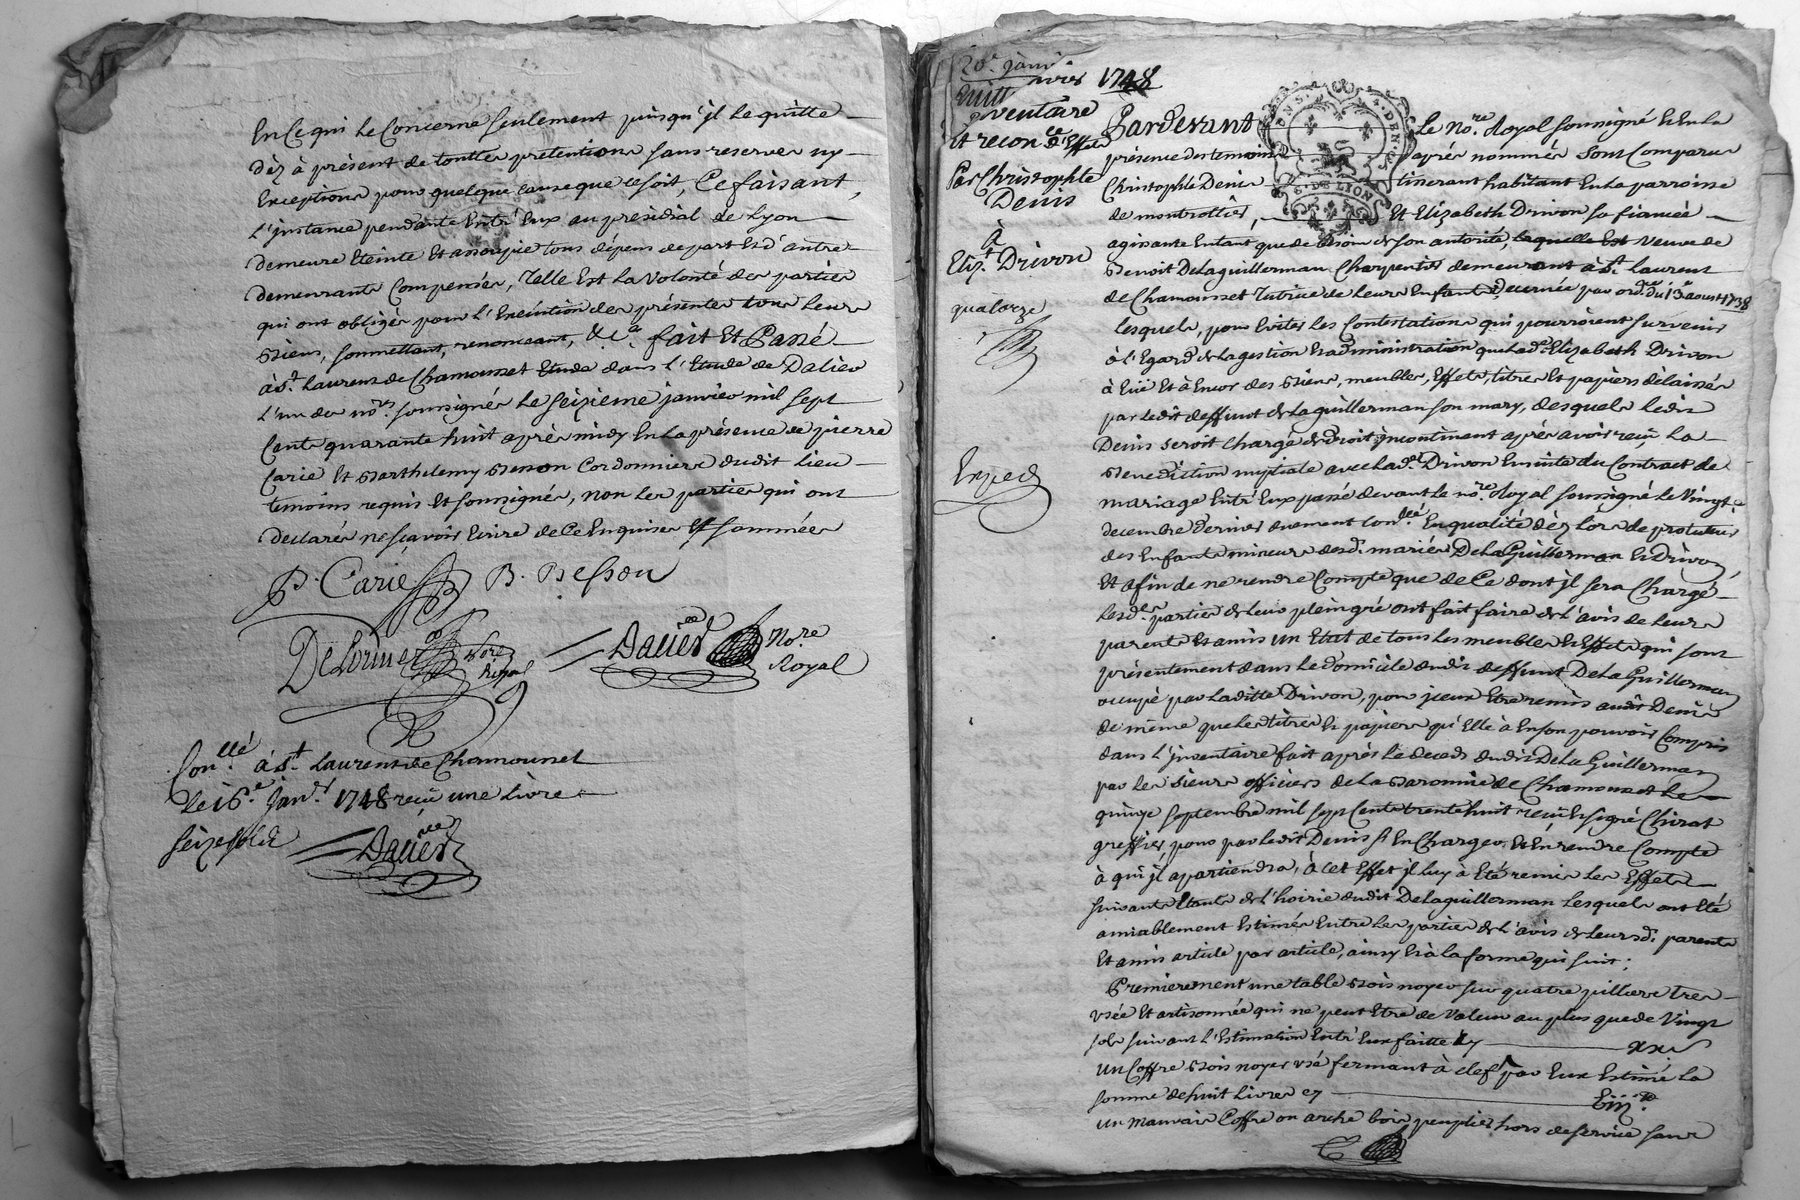 En Ce qui Le Concerne seulement puisqu'jl Le quitte
dèz à présent de touttes pretentions sans reserves ny
Exceptions pour quelque cause que ce soit, Ce faisant,
L'jnstance pendante Entr'Eux au presidial de Lyon
demeure Eteinte Et assoupie tous dépens de part Et d'autre
demeurants Compensés, Telle Est La Volonté des parties
qui ont obligés pour l'Exécution des présentes tous Leurs
Biens, soumettant, renonceant, &c.a fait Et Passé
à St. Laurens de Chamousset Etude dans l'Etude de Dalier
L'un des nores. soussignés Le seizieme janvier mil sept
Cents quarante huit après midy En La présence de pierre
Carie Et Barthelemy Besson Cordonniers dudit Lieu
temoins requis Et soussignés, non Les parties qui ont
déclarés ne sçavoir Ecrire de Ce Enquises Et sommées
P. Carie B. Besson
Delorme Nore Royal
Nore.
Royal
Con.llé à St. Laurent de Chamousset
Le 16.e Janv.r 1748 reçu une Livre
seize sols
20.e janvier 1748
ventaire
Et recon.ce d'Effets
Par Christophle
Denis
à
Eliz.t Drivon
quatorze
Exped
DENS. 4. DEN.OS
G. DE LYON
Pardevant Le No.re Royal soussigné Et En La
présence des temoins après nommés sont Comparus
Christophle Denis tinerant habitant En La parroisse
de montrottier, Et Elizabeth Drivon sa fiancée
agissante Entant que de besoin de son autorité, laquelle Est Veuve de
Benoit Delaguillerman Charpentier demeurant à St. Laurent
de Chamousset Tutrice de Leurs Enfants décernée par ord.ce du 13.e aoust 1738
lesquels, pour Eviter les Contestations qui pourroient survenir
à l'Egard de La gestion Et administration que La d. Elizabeth Drivon
à Eüe Et à Encor des Biens, meubles, Effets, titres Et papiers délaissés
par ledit deffunt de Laguillerman son mary, desquels ledit
Denis seroit chargé de droit jncontinent après avoir reçu La
Benediction nuptiale avec La d. Drivon En suite du Contract de
mariage Entr'Eux passé devant Le no.re Royal soussigné Le Vingt
decembre dernier dument Con.llé En qualité dèz Lors de protuteur
des Enfants mineurs desd. mariés De La Guillerman Et Drivon,
Et afin de ne rendre Compte que de Ce dont jl sera Chargé
les d. parties de Leur plein gré ont fait faire de l'avis de Leurs
parents Et amis un Etat de tous Les meubles Et Effets qui sont
présentement dans Le domicile dudit deffunt De La Guillerman
occupé par Laditte Drivon, pour jceux Etre remis audit Denis
de même que Les titres Et papiers qu'Elle à En son pouvoir Compris
dans L'jnventaire fait après Le deceds dudit De La Guillerman
par Les Sieurs officiers de La Baronnie de Chamousset Le
quinze septembre mil sept Cents trente huit reçu Et signé Chirat
greffier, pour par Ledit Denis s'En Charger, Et En rendre Compte
à qui jl apartiendra, à cet Effet jl luy à Eté remis Les Effets
suivants Etants de L'hoirie dudit Delaguillerman Lesquels ont Eté
amiablement Estimés Entre Les parties de L'avis de Leurs d. parents
Et amis article par article, ainsy Et à La forme qui suit;
Premierement une table Bois noyer sur quatre pilliers tres
usée Et artisonnée qui ne peut Etre de Valeur au plus que de Vingt
sols suivant l'Estimation Entr'Eux faitte Cy xx s
un Coffre Bois noyer usé fermant à clef par Eux Estimé La
somme de huit Livres cy
un mauvais Coffre ou arche bois peuplier hors de service sans